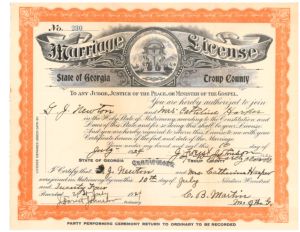 No. 230
Marriage License
State of Georgia Troup County
TO ANY JUDGE, JUSTICE OF THE PEACE, OR MINISTER OF THE GOSPEL.
You are hereby authorized to join
Newton
in the Holy State of Matrimony, according to the Constitution and
Laws of this State and for so doing this shall be your sufficient License.
And you are hereby required to return this License to me with your
Certificate hereon of the fact and date of the Marriage.
Given under my hand and seal this
July
STATE OF GEORGIA
CERTIFICATE
I Certify that J. Newton and Mrs Catherine Harper
were joined in Matrimony by me this 10th day of July Nineteen Hundred and
Twenty Four
Recorded
C. B. Martin
PARTY PERFORMING CEREMONY RETURN TO ORDINARY TO BE RECORDED